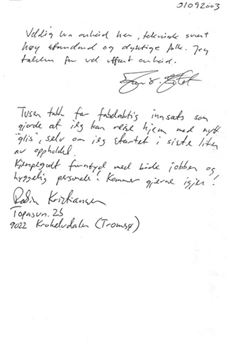 01092003
Veldig bra arbeid her, teknisk svært
høy standard og dyktige folk. Jeg
takker for vel utført arbeid.
Tusen takk for fabelaktig innsats som
gjorde at jeg kan reise hjem med nytt
glis, selv om jeg startet i siste liten
av oppholdet.
Kjempegodt fornøyd med både jobben og
hyggelig personale! Kommer gjerne igjen!
Kristiansen
Topasvn. 26
9022 Krokelvdalen (Tromsø)